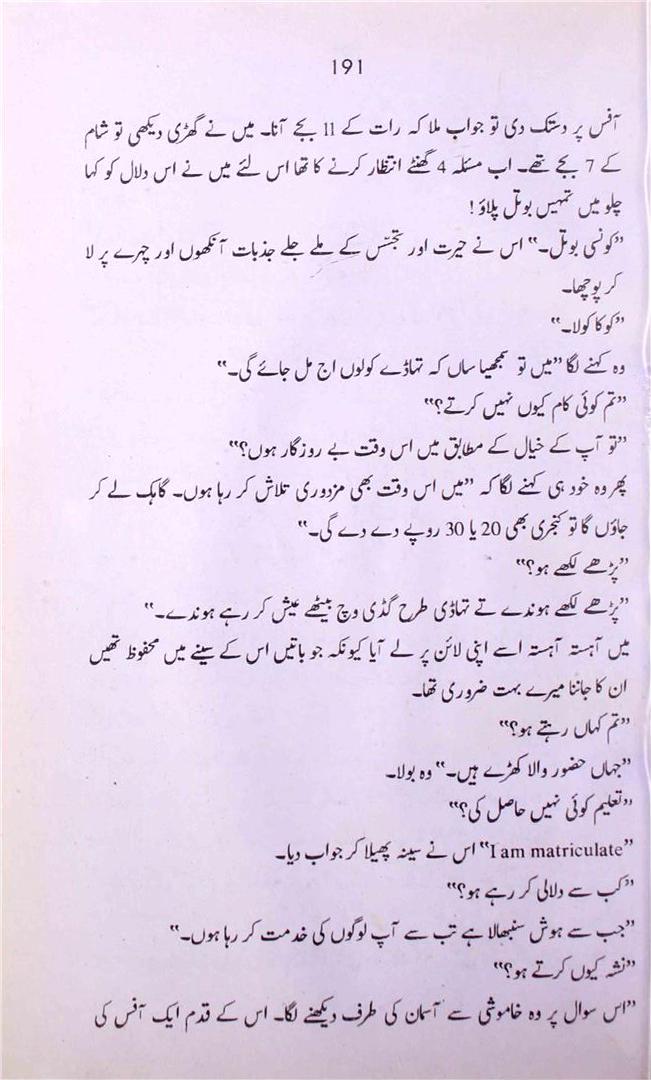 191
آفس پر دستک دی تو جواب ملا کہ رات کے 11 بجے آنا۔ میں نے گھڑی دیکھی تو شام
کے 7 بجے تھے۔ اب مسئلہ 4 گھنٹے انتظار کرنے کا تھا اس لئے میں نے اس دلال کو کہا
چلو میں تمہیں بوتل پلاؤ !
”کونسی بوتل۔“ اس نے حیرت اور تجسّس کے ملے جلے جذبات آنکھوں اور چہرے پر لا
کر پوچھا۔
”کوکا کولا۔“
وہ کہنے لگا ”میں تو سمجھیا ساں کہ تہاڈے کولوں اج مل جائے گی۔“
”تم کوئی کام کیوں نہیں کرتے؟“
”تو آپ کے خیال کے مطابق میں اس وقت بے روزگار ہوں؟“
پھر وہ خود ہی کہنے لگا کہ ”میں اس وقت بھی مزدوری تلاش کر رہا ہوں۔ گاہک لے کر
جاؤں گا تو کنجری بھی 20 یا 30 روپے دے دے گی۔“
”پڑھے لکھے ہو؟“
”پڑھے لکھے ہوندے تے تہاڈی طرح گڈی وچ بیٹھے عیش کر رہے ہوندے۔“
میں آہستہ آہستہ اسے اپنی لائن پر لے آیا کیونکہ جو باتیں اس کے سینے میں محفوظ تھیں
ان کا جاننا میرے بہت ضروری تھا۔
”تم کہاں رہتے ہو؟“
”جہاں حضور والا کھڑے ہیں۔“ وہ بولا۔
”تعلیم کوئی نہیں حاصل کی؟“
”I am matriculate“ اس نے سینہ پھیلا کر جواب دیا۔
”کب سے دلالی کر رہے ہو؟“
”جب سے ہوش سنبھالا ہے تب سے آپ لوگوں کی خدمت کر رہا ہوں۔“
”نشہ کیوں کرتے ہو؟“
”اس سوال پر وہ خاموشی سے آسمان کی طرف دیکھنے لگا۔ اس کے قدم ایک آفس کی